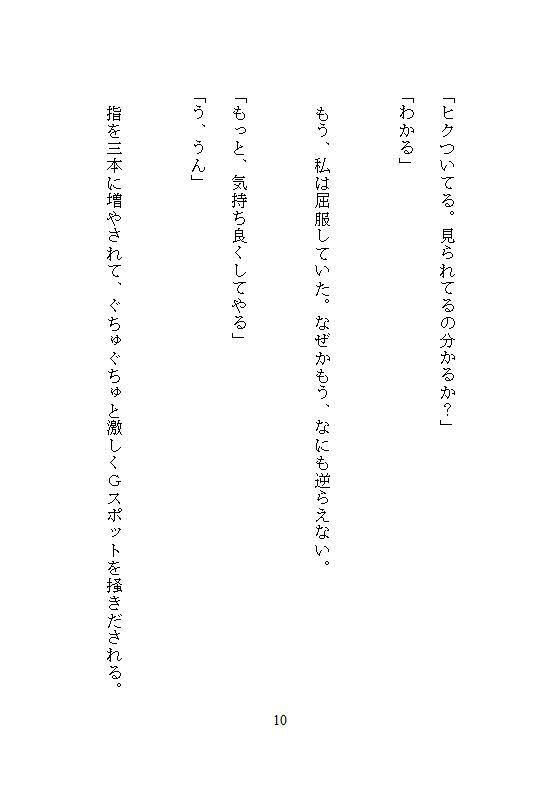 「ヒクついてる。見られてるの分かるか?」
「わかる」
もう、私は屈服していた。なぜかもう、なにも逆らえない。
「もっと、気持ち良くしてやる」
「う、うん」
指を三本に増やされて、ぐちゅぐちゅと激しくGスポットを掻きだされる。
10